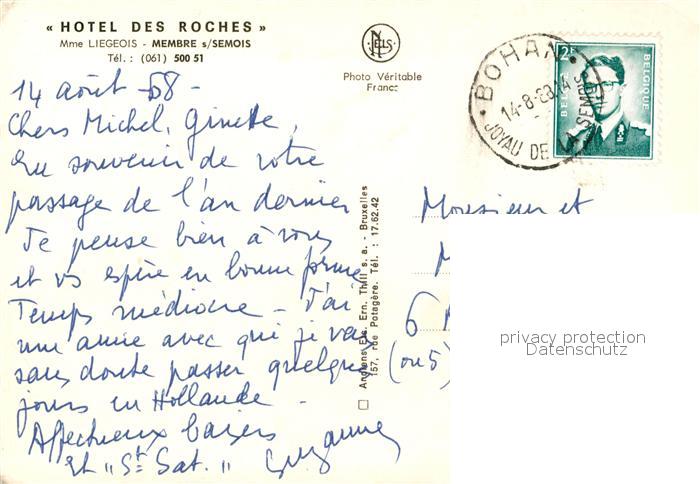 « HOTEL DES ROCHES »
Mme LIEGEOIS - MEMBRE s/SEMOIS
Tél. : (061) 500 51
NELS
Photo Véritable
France
BOHAN
14-8-68 14
JOYAU DE LA SEMOIS
2F
BELGIE BELGIQUE
14 août 68 -
Chers Michel, Ginette,
En souvenir de votre
passage de l'an dernier
Je pense bien à vous
et vs espère en bonne forme
Temps médiocre - J'ai
une amie avec qui je vais
sans doute passer quelques
jours en Hollande -
Affectueux baisers
et "St Sat."
Suzanne
Anciens Ets. Ern. Thill s. a. - Bruxelles
157, rue Potagère. Tél. : 17.62.42
Monsieur et
M
6
(ou 5)
privacy protection
Datenschutz